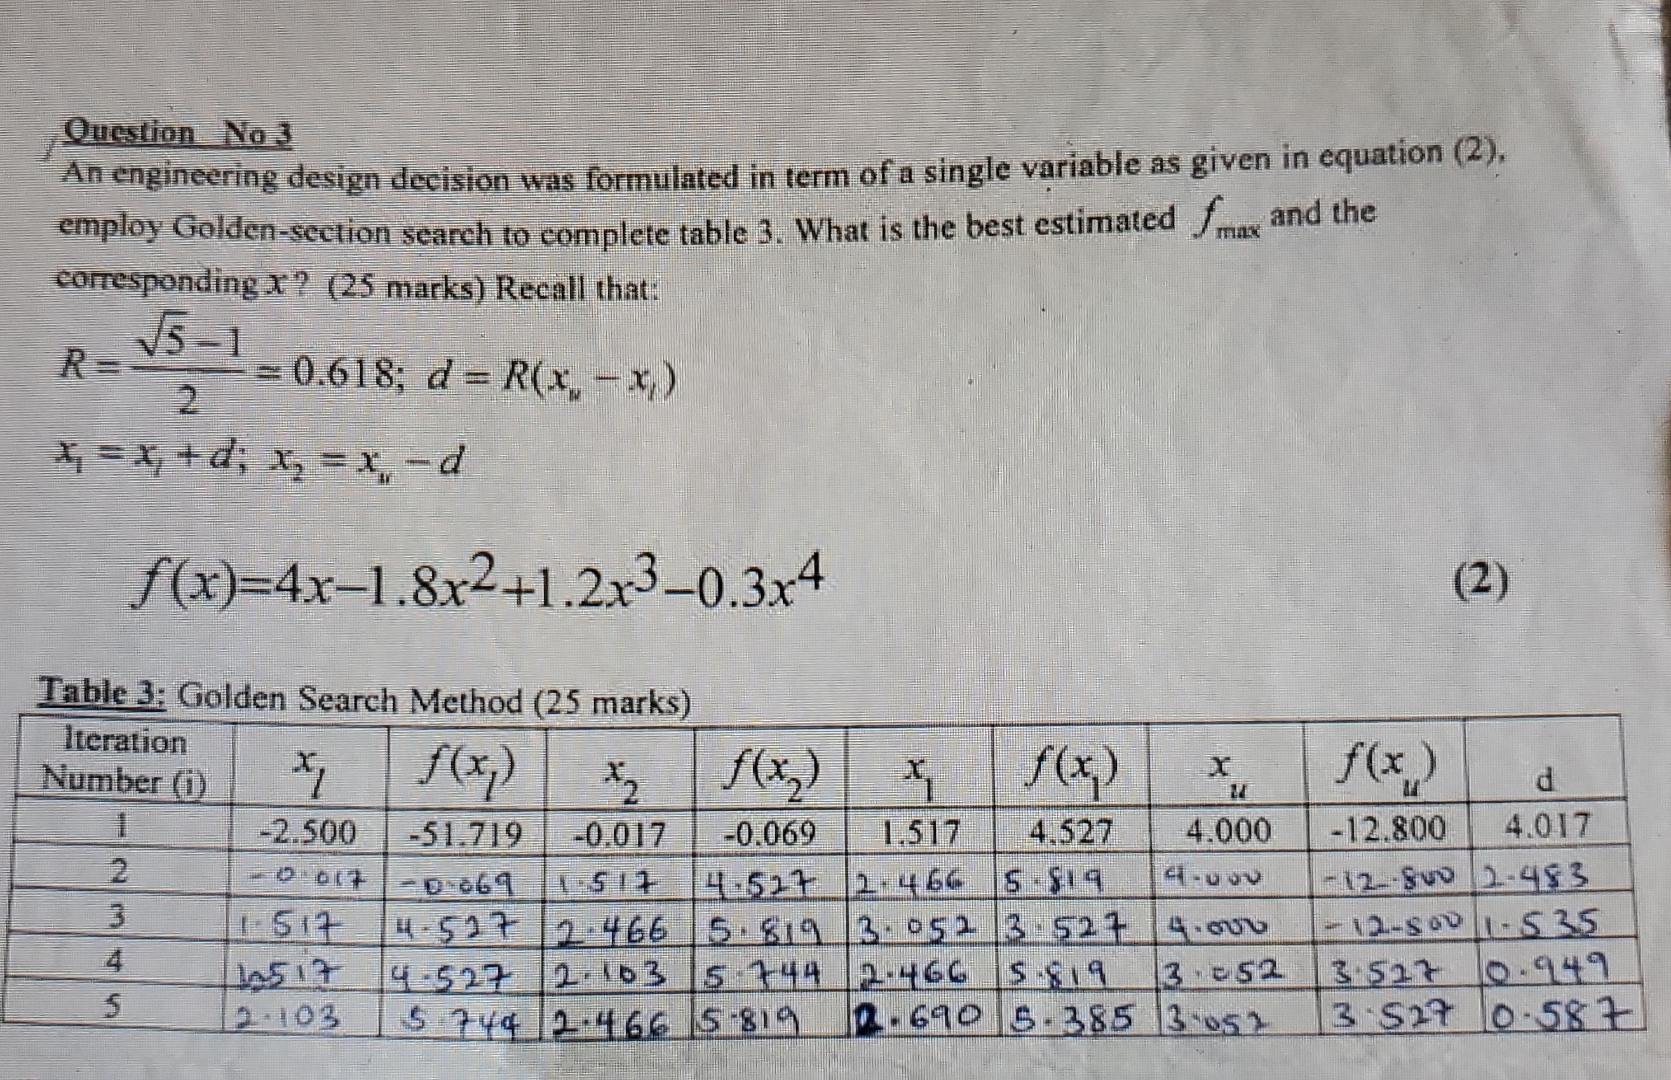 Question No 3
An engineering design decision was formulated in term of a single variable as given in equation (2),
employ Golden-section search to complete table 3. What is the best estimated f_max and the
corresponding x? (25 marks) Recall that:
R = (√5 − 1)/2 = 0.618; d = R(x_u − x_l)
x_1 = x_l + d; x_2 = x_u − d
f(x)=4x−1.8x²+1.2x³−0.3x⁴ (2)
Table 3: Golden Search Method (25 marks)
Iteration Number (i) x_l f(x_l) x_2 f(x_2) x_1 f(x_1) x_u f(x_u) d
1 -2.500 -51.719 -0.017 -0.069 1.517 4.527 4.000 -12.800 4.017
2 -0.017 -0.069 1.517 4.527 2.466 5.819 4.000 -12.800 2.483
3 1.517 4.527 2.466 5.819 3.052 3.527 4.000 -12.800 1.535
4 1.517 4.527 2.103 5.744 2.466 5.819 3.052 3.527 0.949
5 2.103 5.744 2.466 5.819 2.690 5.385 3.052 3.527 0.587